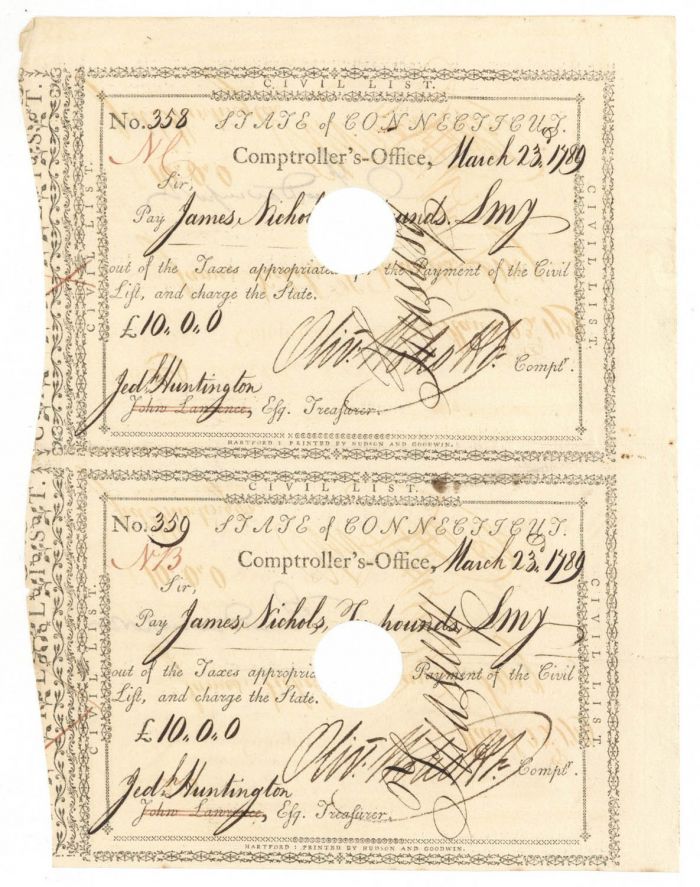 CIVIL LIST.
No. 358 STATE of CONNECTICUT.
Comptroller's-Office, March 23d, 1789
Sir,
Pay James Nichols pounds, Lmy
out of the Taxes appropriated for the Payment of the Civil
Lift, and charge the State.
£10.0.0
Compl'r.
Jed. Huntington
John Lawrence, Esq. Treasurer.
HARTFORD: PRINTED BY HUDSON AND GOODWIN.
CIVIL LIST.
CIVIL LIST.
CIVIL LIST.
No. 359 STATE of CONNECTICUT.
Comptroller's-Office, March 23d, 1789
Sir,
Pay James Nichols, Ten pounds, Lmy
out of the Taxes Payment of the Civil
List, and charge the State.
£10.0.0
Compl'r.
Jed. Huntington
John Lawrence, Esq. Treasurer.
HARTFORD: PRINTED BY HUDSON AND GOODWIN.
CIVIL LIST.
CIVIL LIST.